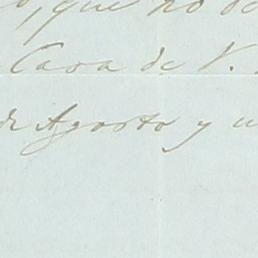 que no
Casa de V.
de Agosto y